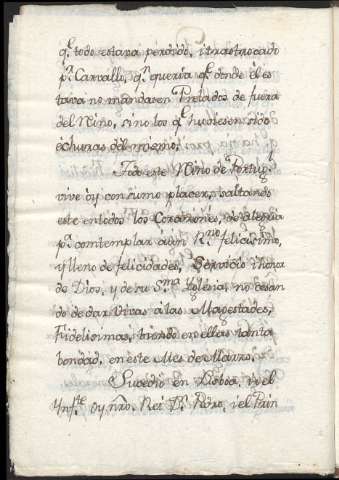 q.e todo estava perdido, i trastrocado
p.r Carvallo, q.e queria q.e donde èl es
tava no mandasen Prelados de fuera
del Niño, sino los q.e huviesen sido
echuras del mismo;
Todo este Reino de Portug.l
vive oy con sumo placer, saltando
este en todos los Corazones, de alegria
p.r contemplar à un R.no felicisimo,
y lleno de felicidades, Servicio i honor
de Dios, y de su S.ma Yglesia, no cesan
do de dar Vivas à las Magestades,
Fidelisimas, viendo en ellas tanta
bondad, en este Mes de Marzo,
Sucedió en Lisboa, q.e el
Ynf.te oy nro. Rei D.n Pedro, i el Prin